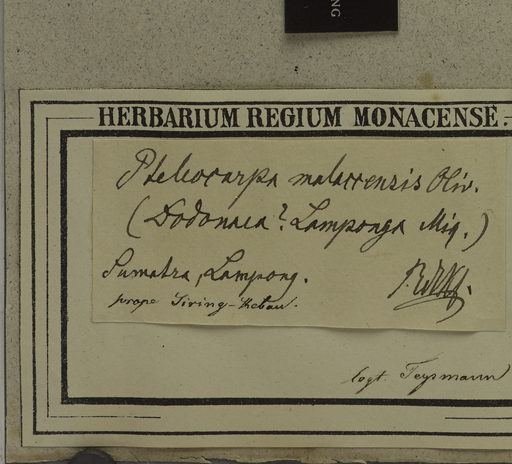 NG
HERBARIUM REGIUM MONACENSE.
Pteleocarpa malaccensis Oliv.
(Dodonaea? Lamponga Miq.)
Sumatra, Lampong.
prope Siring-Kebau.
legt. Teysmann